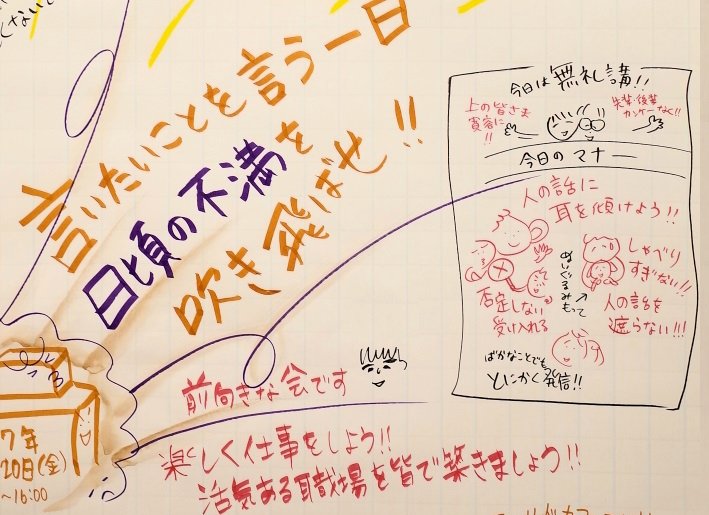 言いたいことを言う一日
日頃の不満を
吹き飛ばせ!!
今日は無礼講!!
上の皆さま
寛容に
!!
先輩・後輩
カンケーなく!!
今日のマナー
人の話に
耳を傾けよう!!
否定しない
受け入れる
ぬいぐるみもって
しゃべり
すぎない!!
人の話を
遮らない!!!
ばかなことでも
とにかく発信!!
前向きな会です
楽しく仕事をしよう!!
活気ある職場を皆で築きましょう!!
7年
20日(金)
~16:00